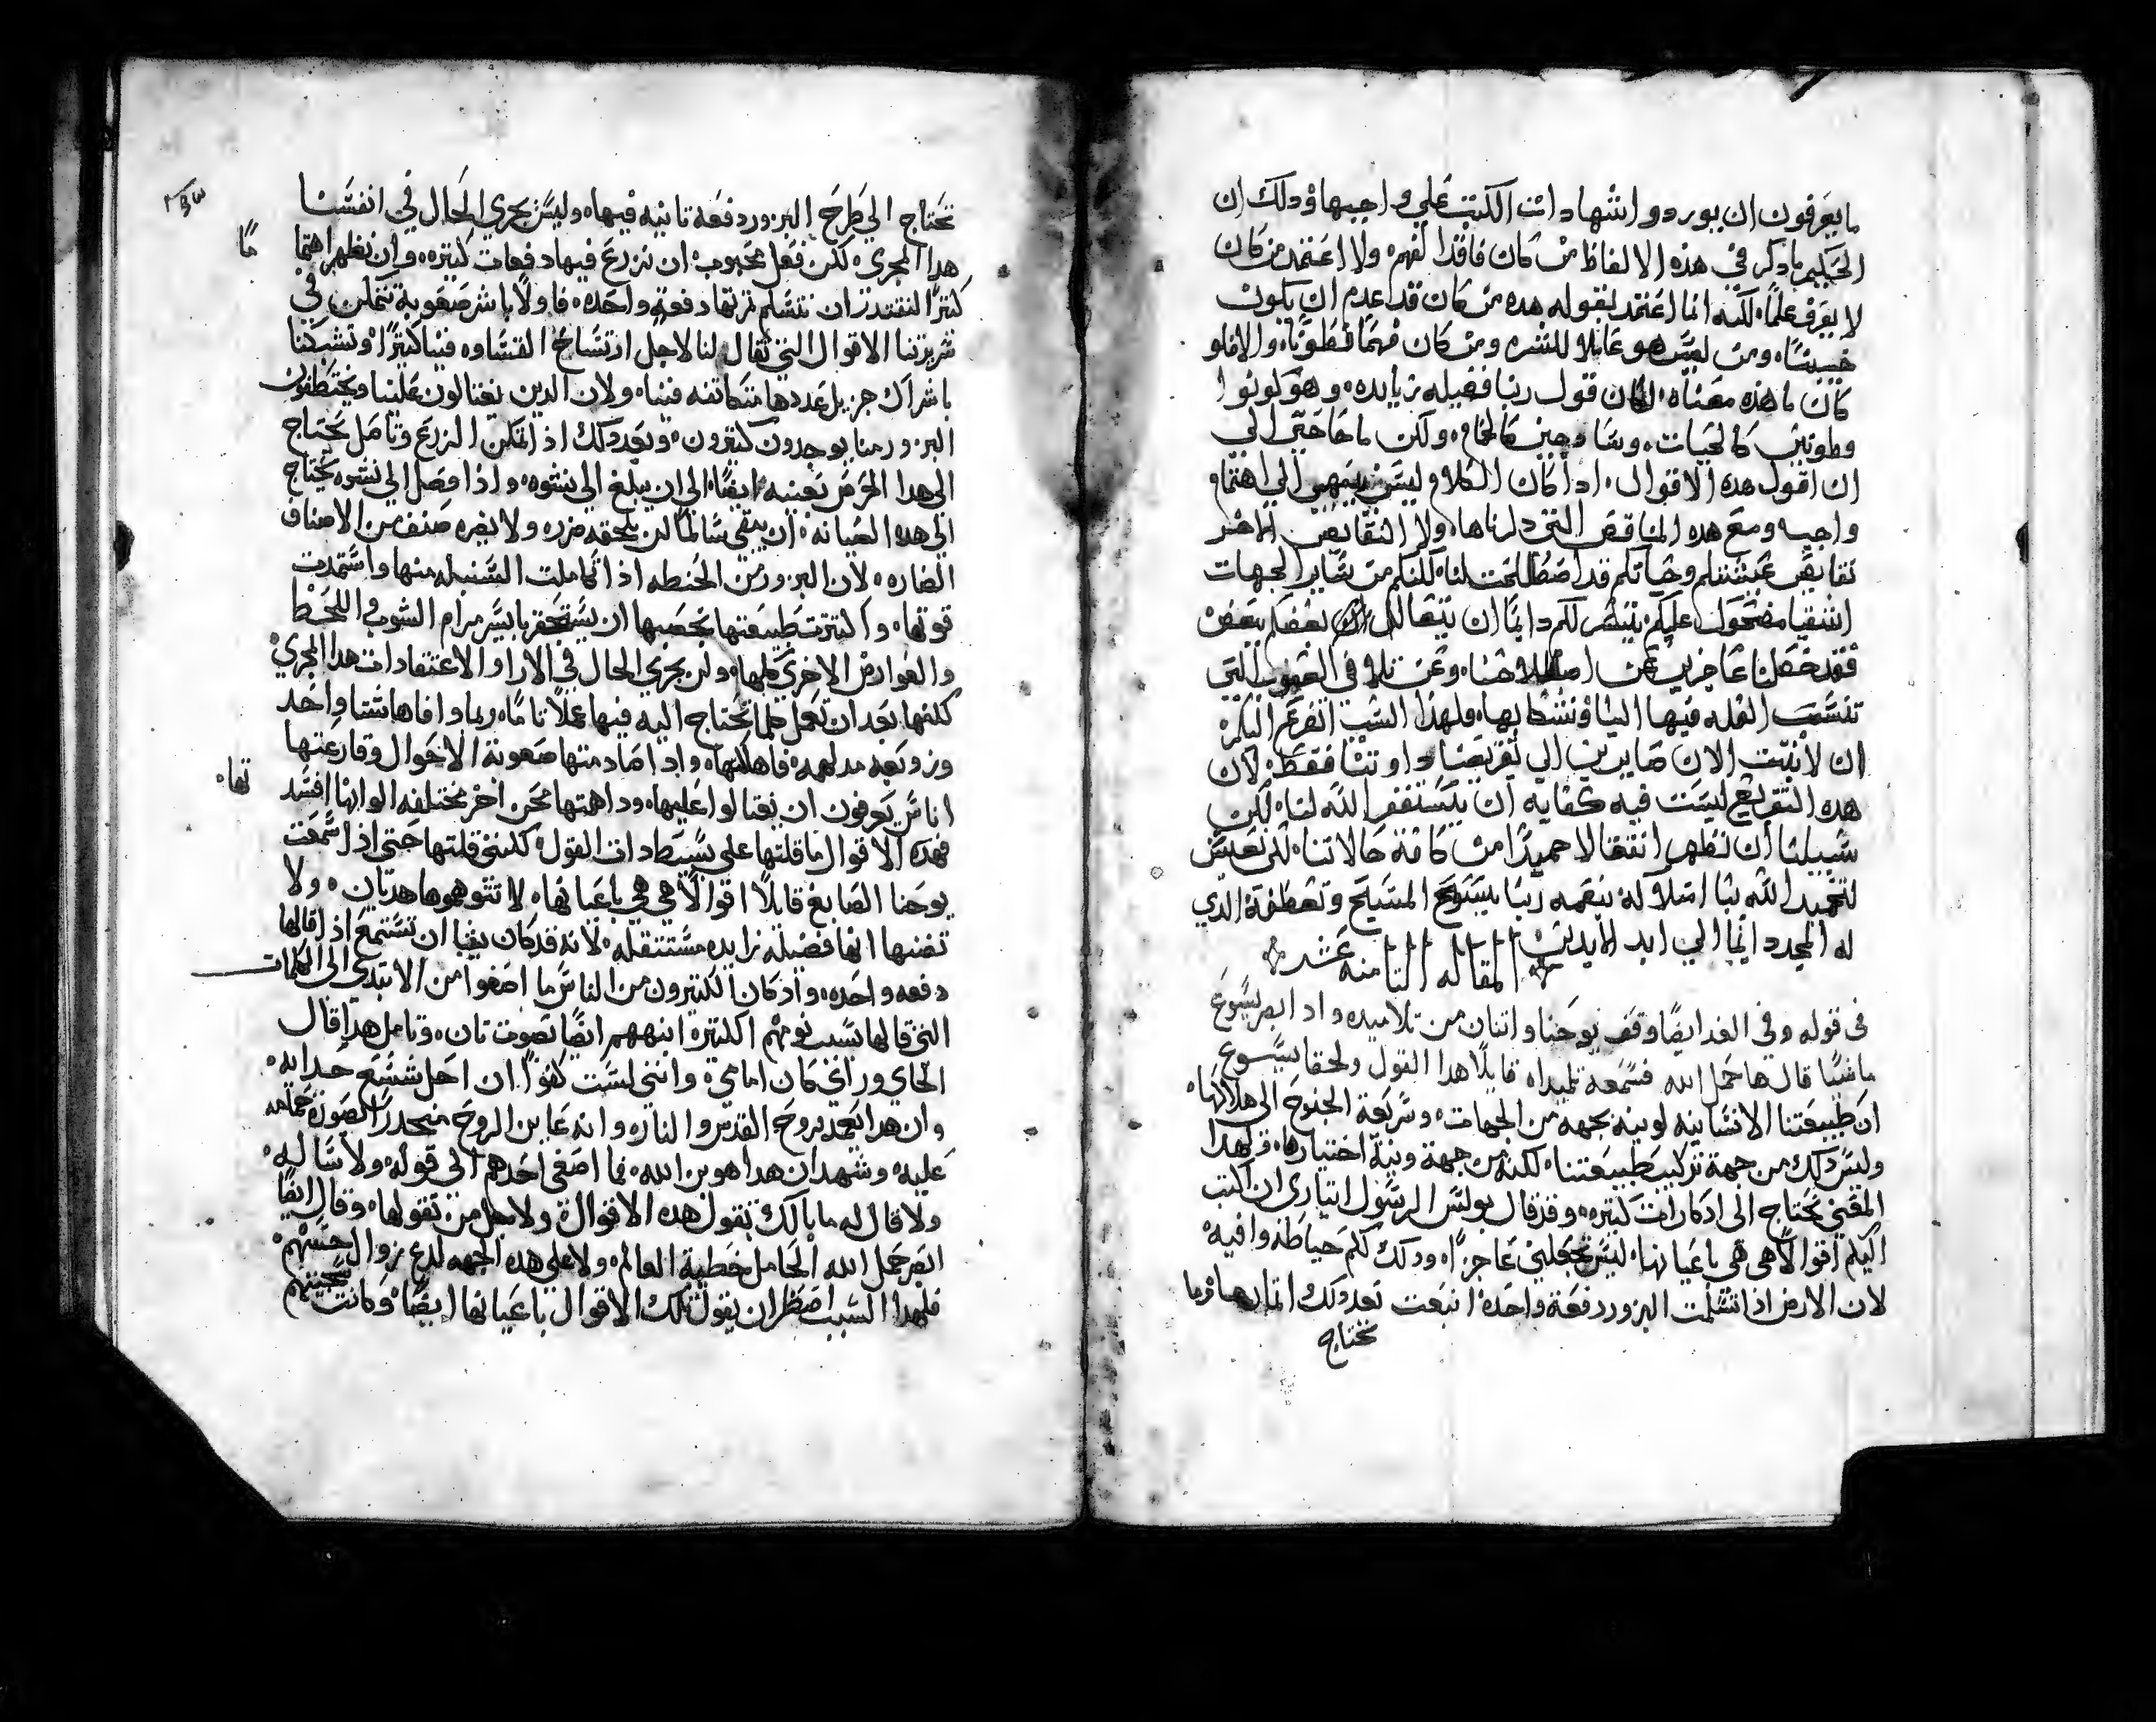 ما يعرفون ان يوردوا شهادات الكتب علي واجبها وذلك ان
الحكيم ما ذكر في هذه الالفاظ من كان فاقدا لفهم ولا اعتمد من كان
لا يعرف علما لكنه انما اعتمد بقوله هده من كان قد عدم ان يكون
خسيسا ومن ليس هو غايلا للشره ومن كان فهما فطونا والا فلو
كان ما هذه معناه لكان قول ربنا فضيله زايده وهو كونوا
فطونين كالحيات وسادجين كالحمام ولكن ما حاجتي الي
ان اقول هده الاقوال اذا كان الكلام ليس ينهي الي اهتمام
واجب ومع هده المناقص التي ذكرناها ولا النقايص الاخر
نقايص عيشتكم وحياتكم قد اصطلحت لنا لكنكم من ساير الجهات
اشقيا مضحوك عليكم يتيسر لكم دايما ان يتقابل بعضكم ببعض
فقد حصلنا عاجزين عن اصلاحنا ونحن نلام في العيوب التي
تنسب العله فيها الينا ونشكا بها ولهذا السبب اتضرع اليكم
ان لا نثبت الان صايرين الي تقريض ذواتنا فقط لان
هده التقريع ليست فيه كفايه ان يستغفر الله لنا لكن
سبيلنا ان نظهر انتقالا حميدا من كافة حالاتنا لكي نعيش
لتمجيد الله بنا امتلاكه بنعمه ربنا يسوع المسيح وتعطفه الدي
له المجد دايما الي ابد الابدين
المقاله الثامنه عشر
في قوله وفي الغد ايضا وقف يوحنا واتنان من تلاميده واد ابصر يسوع
ماشيا قال ها حمل الله فسمعه تلميداه قايلا هدا القول ولحقا بيسوع
ان طبيعتنا الانسانيه لوينه بجهه من الجهات وسريعة الجنوح الي هلاكها
وليس ذلك من جهة تركيب طبيعتنا لكنه من جهة ونية اختيارها فلهدا
المعني تحتاج الي ادكارات كتيره وقد قال بولس الرسول ايتاري ان اكتب
اليكم اقوالا هي هي باعيانها ليس تجعلني عاجزا ودلك لكم حياطه وافيه
لان الارض اذا تسلمت البزور دفعة واحدة انبعت بعد ذلك اتمارها وما
تحتاج
٢٤٣
تحتاج الي طرح البزور دفعه تانيه فيها وليس يجري الحال في انفسنا
هدا المجري لكن فعل محبوب ان نزرع فيها دفعات كتيره وان نظهر اهتما
ما
كتيرا لنقتدر ان نتسلم زرعها دفعة واحده فاولا باشر صعوبة تتمكن في
سريرتنا الاقوال التي تقال لنا لاجل ارتساخ القساوه فينا كتيرا وتشبكنا
باشراك جزيل عددها متكاتفه فينا ولان الدين يغتالون علينا ويختطفون
البزور منا يوجدون كتيرون وبعد دلك اذ اتمكن الزرع وتاصل يحتاج
الي هدا الحرص بعينه ايضا الي ان يبلغ الي نشوه واذا وصل الي نشوه يحتاج
الي هده الصيانه ان يبقي سالما لن يلحقه ضرر ولا يضره صنف من الاصناف
الضاره لان البزور من الحنطه اذا تكاملت السنبله منها واستمدت
قوتها واكتنزت طبيعتها بخصبها ان يستحقر بايسر مرام الشوب في القحط
والعوارض الاخري كلها ولن يجري الحال في الارا والاعتقادات هدا المجري
كلنها بعد ان نعمل كلما تحتاج اليه فيها عملا تاما ربما وافاها شتا واحد
وزوبعه مدلهمه فاهلكتها واذا صادمتها صعوبة الاحوال وقارعتها
اناس يعرفون ان يغتالوا عليها وداهمتها محن اخر مختلفه الوانها افسد
تها
فهده الاقوال ما قلتها علي بسيطات القول كلنني قلتها حتي اذا سمعت
يوحنا الصابغ قايلا اقوالا هي هي باعيانها لا تتوهموها هديان ولا
تظنها انها فضيله زايده مستتقله لانه قد كان يبغا ان تستمع اذ قالها
دفعه واحده واذ كان الكتيرون من الناس ما اصغوا من الابتدي الي الكلمات
التي قالها بسبب نومهم الكتيره انبههم ايضا بصوت تان وتامل هدا قال
الجاي وراي كان امامي وانني لست كفوا ان احل شسع حداله
وان هدا يعمد بروح القدس والنار وانه عاين الروح منحدرا بصورة حمامه
عليه وشهد ان هدا هو بن الله فما اصغي احدهم الي قوله ولا ساله
ولا قال له ما بالك تقول هده الاقوال ولاجل من تقولها وقال ايضا
ابصر حمل الله الحامل خطية العالم ولا علي هده الجهه لدع زوال حسهم
فلهدا السبب اضطر ان يقول تلك الاقوال باعيانها ايضا وكانت سجيتهم